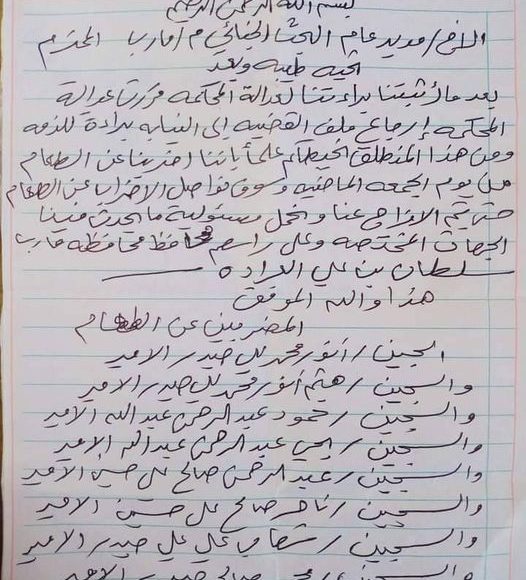 بسم الله الرحمن الرحيم
الاخ/ مدير عام البحث الجنائي م/ مارب المحترم
تحيه طيبه وبعد
بعد ما أثبتنا براءتنا لعدالة المحكمه قررت عدالة
المحكمه إرجاع ملف القضيه الى النيابه براءة للذمه
ومن هذا المنطلق نحيطكم علماً باننا اضربنا عن الطعام
من يوم الجمعه الماضيه وسوف نواصل الاضراب عن الطعام
حتى يتم الافراج عنا ونحمل مسئولية ما يحدث فينا
الجهات المختصه وعلى راسهم محافظ محافظة مارب
سلطان بن علي العراده
هذا والله الموفق
المضربين عن الطعام
السجين / أنور محمد علي حيدر الامير
والسجين / هيثم أنور محمد علي حيدر الامير
والسجين / حمود عبدالرحمن عبدالله الامير
والسجين / يحيى عبدالرحمن عبدالله الامير
والسجين / عبدالرحمن صالح علي حسين الامير
والسجين / ناصر صالح علي حسين الامير
والسجين / علي علي حيدر الامير
والسجين / صالح حيدر الامير